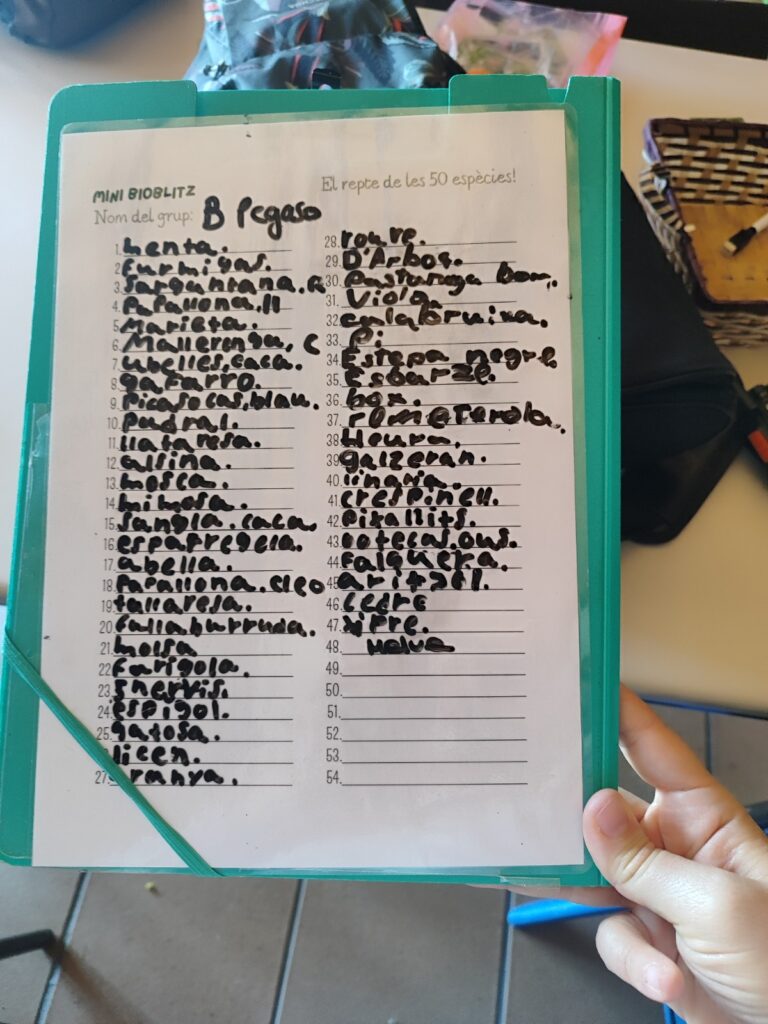 MINI BIOBLITZ
El repte de les 50 espècies!
Nom del grup: B Pegaso
1. Menta.
2. furmigas.
3. Sargantana.
4. Papallona,ll
5. Marieta.
6. Mallerenga, C
7. ubelles,caca.
8. gafarro.
9. Picasocas,blau.
10. pudral.
11. llataresa.
12. alsina.
13. mosca.
14. mimosa.
15. sangla.caca.
16. esparregela.
17. abella.
18. Papallona.cleo
19. tallaresa.
20.
21. molsa
22. farigola.
23.
24. espigol.
25. gatosa.
licen.
27. ranya.
28. roure.
29. D'Arboç.
30. Pastanaga bor.
31. Viola.
32. calabruixa.
33. Pi.
34. Estepa negre.
35. Esbarze.
36. box.
37.
38. Heura.
39. galzeran.
40. linaria.
41. crespinell.
42. Pixallits.
43.
44. falguera.
45. aritjol.
46. cedre
47. xipre.
48. Malva
49.
50.
51.
52.
53.
54.